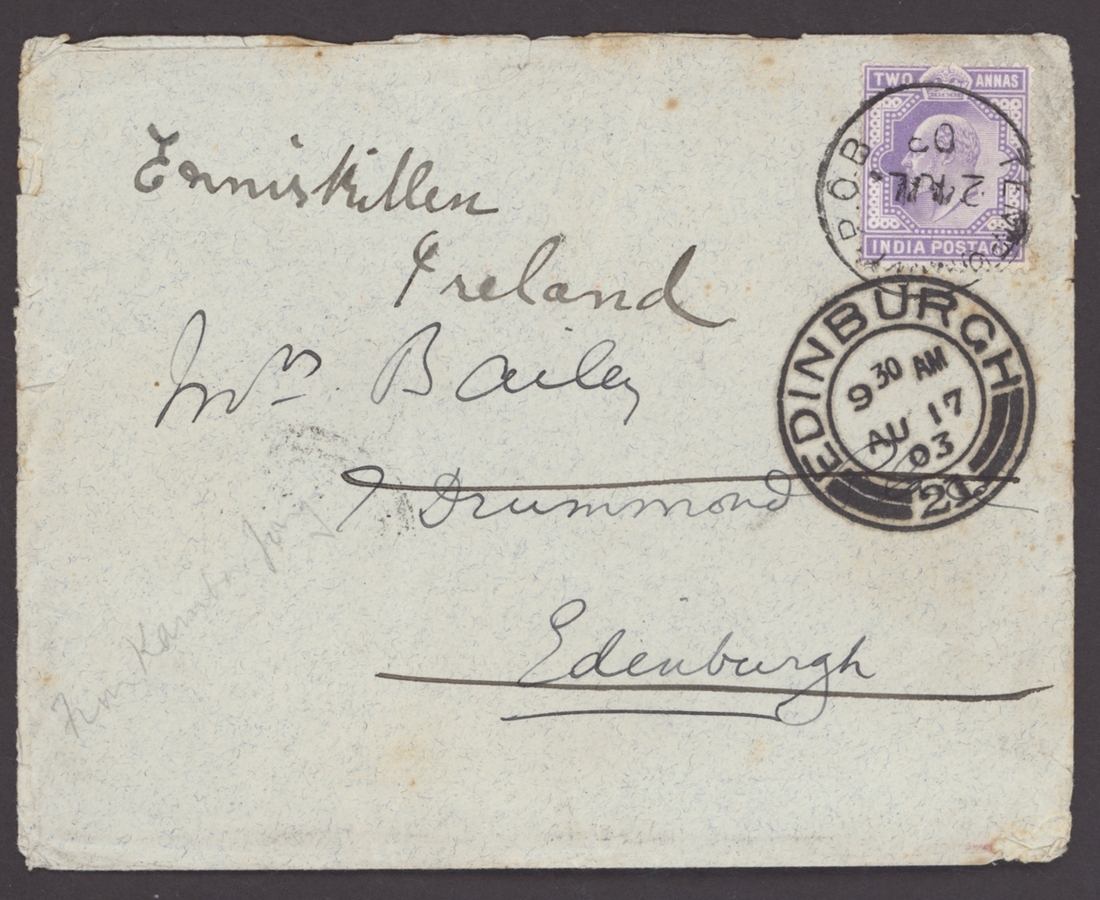 Enniskillen
Ireland
Mrs Bailey
7 Drummond
Edenburgh
TWO ANNAS
INDIA POSTAGE
P.O.B
2 JUL
03
EDINBURGH
9 30 AM
AU 17
03
From